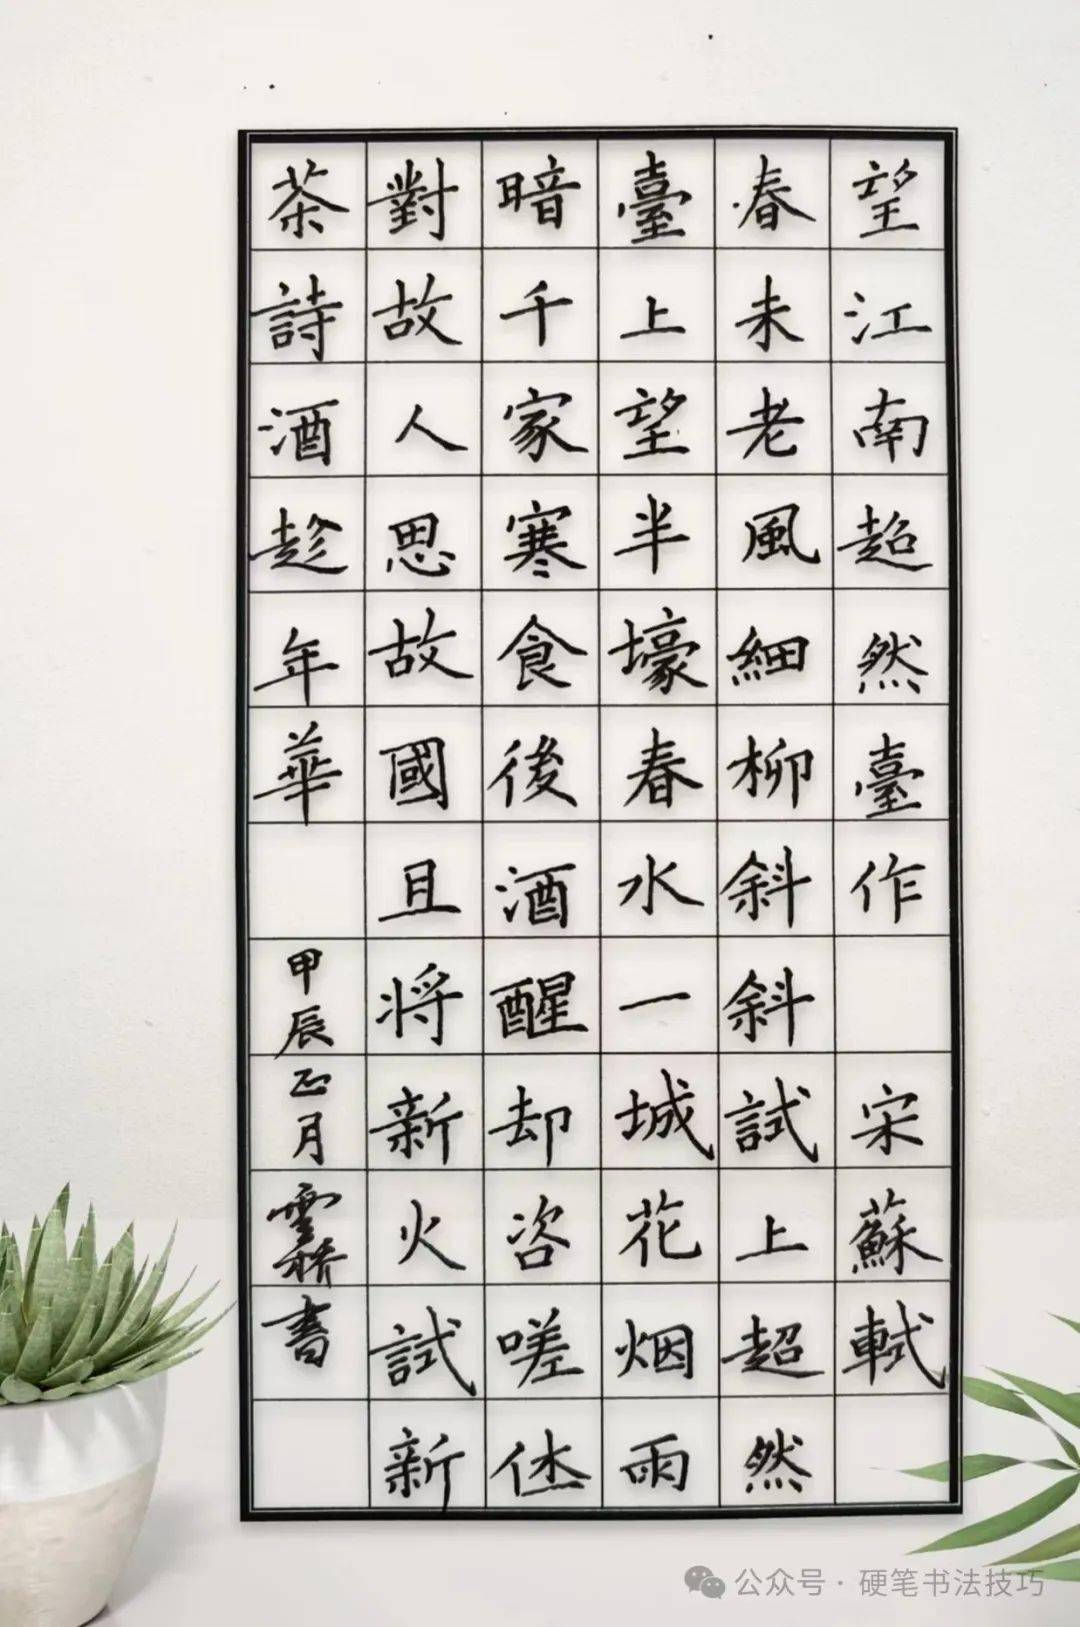 望江南超然臺作 宋蘇軾
春未老風細柳斜斜試上超然
臺上望半壕春水一城花烟雨
暗千家寒食後酒醒却咨嗟休
對故人思故國且将新火試新
茶詩酒趁年華 甲辰正月雲橋書
公众号·硬笔书法技巧